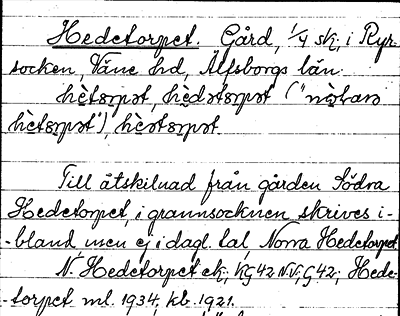 Hedetorpet. Gård, 1/4 sk, i Ryr-
socken, Väne hd, Älfsborgs län.
hètsrpət, hèdətsrpət ("nǫ̀karə
hètsrpət"), hèətsrpət
Till åtskilnad från gården Södra
Hedetorpet, i grannsocknen skrives i-
-bland men ej i dagl. tal, Norra Hedetorpet
N. Hedetorpet ek; KG42 N.V.; G.42; Hede-
-torpet ml. 1934, kb. 1921.